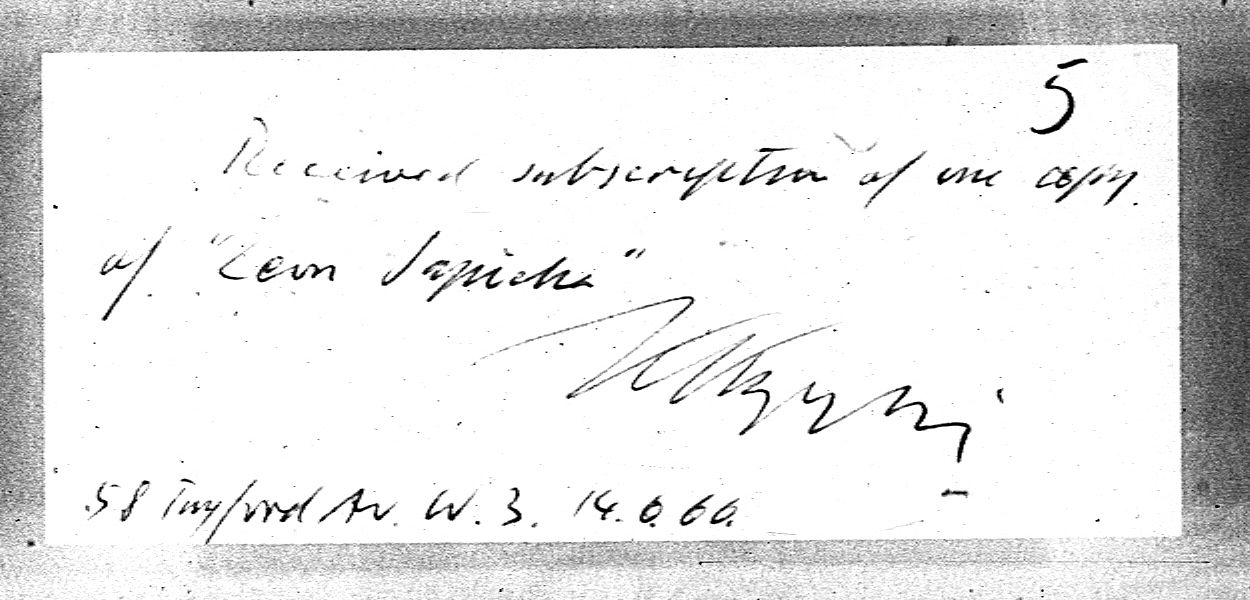 5
Received subscription of one copy
of "Leon Sapieha"
58 Twyford Av. W. 3. 14.6.60.